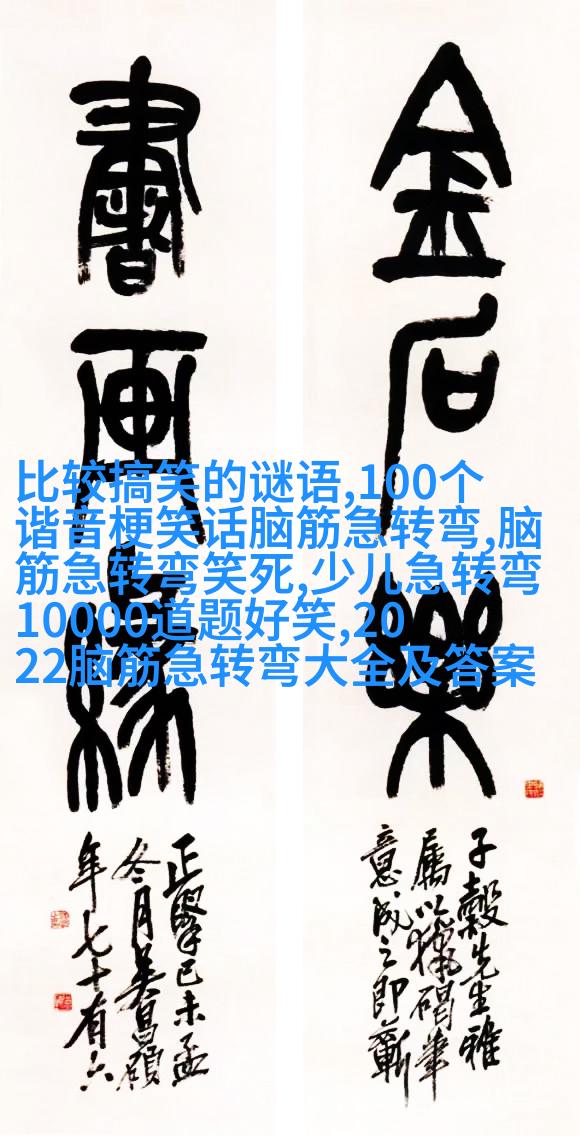 金石樂
子穀先生雅
屬以獵碣筆
意成之即蘄
書畫緣
正己未孟
冬月吳昌碩
年七十有六
比较搞笑的谜语,100个
谐音梗笑话脑筋急转弯,脑
筋急转弯笑死,少儿急转弯
10000道题好笑,20
22脑筋急转弯大全及答案